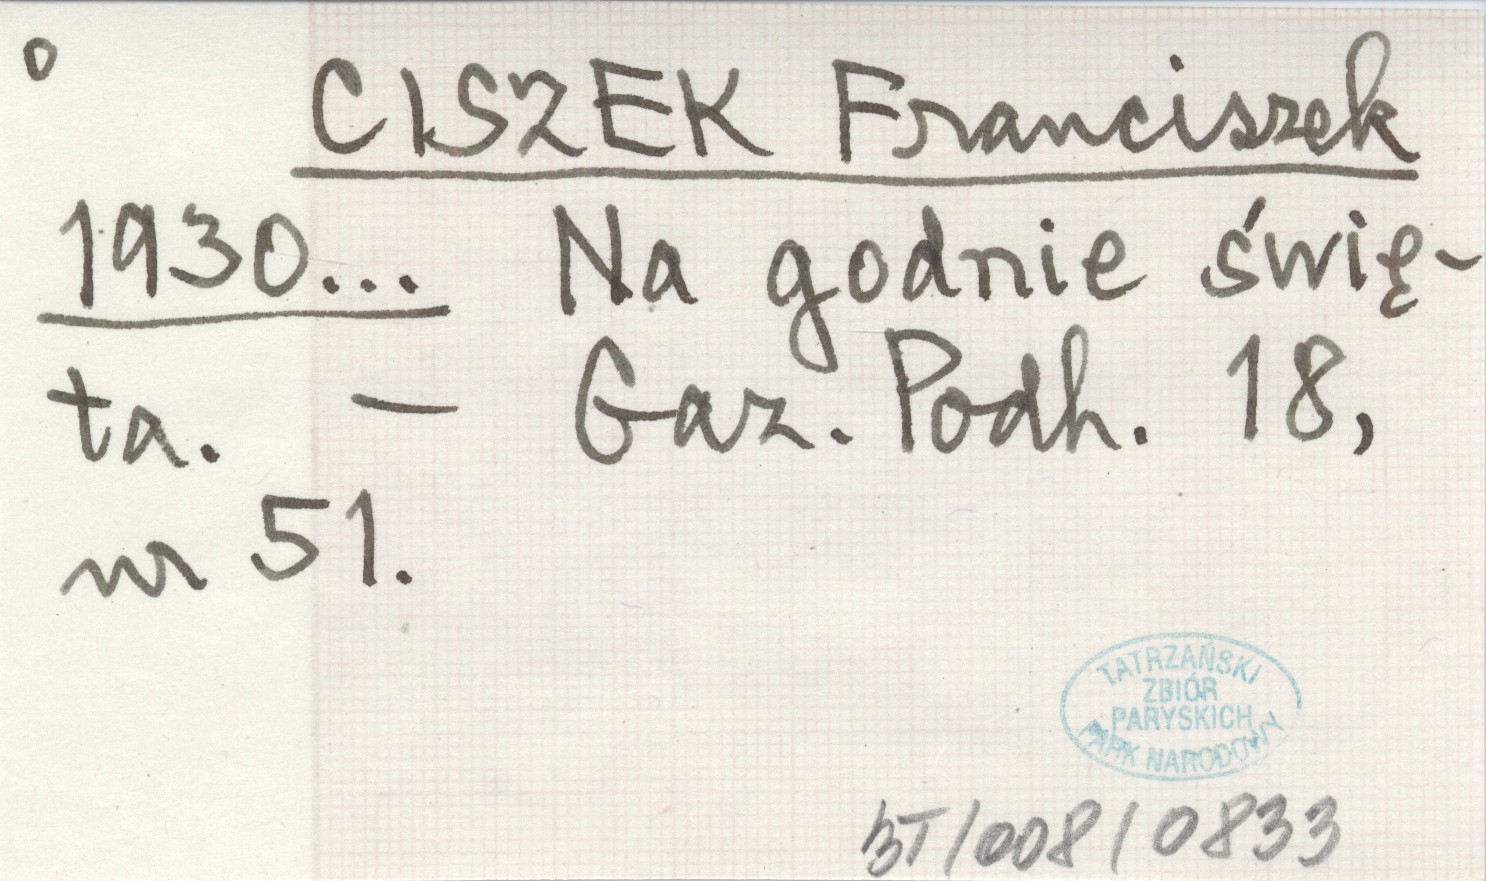 o CISZEK Franciszek
1930... Na godnie świę-
ta. — Gaz. Podh. 18,
nr 51.
TATRZAŃSKI
ZBIÓR
PARYSKICH
PARK NARODOWY
BT/008/0833